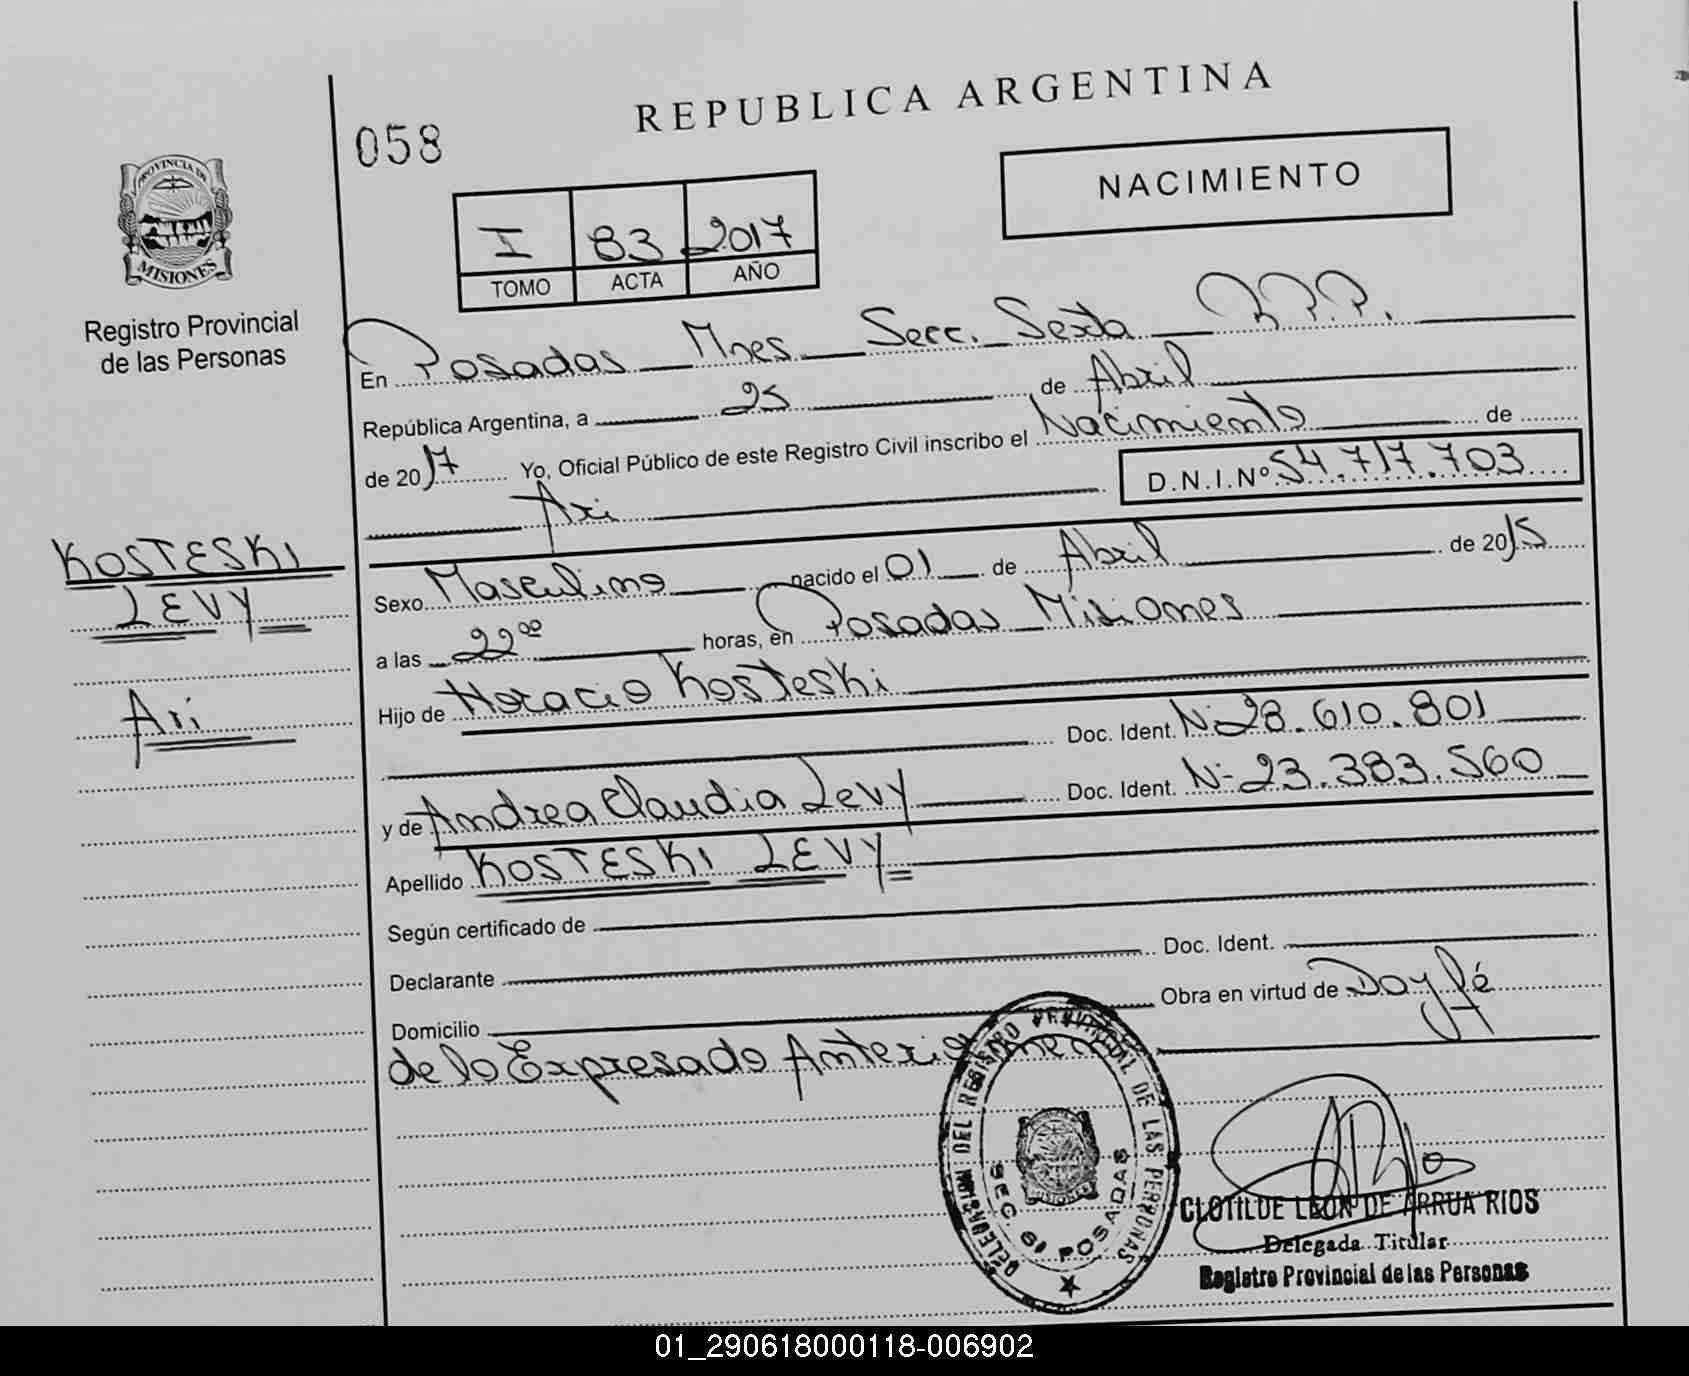 REPUBLICA ARGENTINA
058
NACIMIENTO
PROVINCIA DE
MISIONES
Registro Provincial
de las Personas
I 83 2017
TOMO ACTA AÑO
En Posadas Mnes. Secc. Sexta R.P.P.
República Argentina, a 25 de Abril
de 2017 Yo, Oficial Público de este Registro Civil inscribo el Nacimiento de
Ari D.N.I.Nº 54.717.703
KOSTESKI
LEVY
Ari
Sexo Masculino nacido el 01 de Abril de 2015
a las 22⁰⁰ horas, en Posadas Misiones
Hijo de Horacio Kosteski
Doc. Ident. Nº 28.610.801
y de Andrea Claudia Levy Doc. Ident. Nº 23.383.560
Apellido KOSTESKI LEVY
Según certificado de
Declarante Doc. Ident.
Domicilio Obra en virtud de Doy fé
de lo Expresado
DELEGACION DEL REGISTRO PROVINCIAL DE LAS PERSONAS
SEC. 6ª POSADAS
MISIONES
CLOTILDE LEON DE ARRUA RIOS
Delegada Titular
Registro Provincial de las Personas
01_290618000118-006902